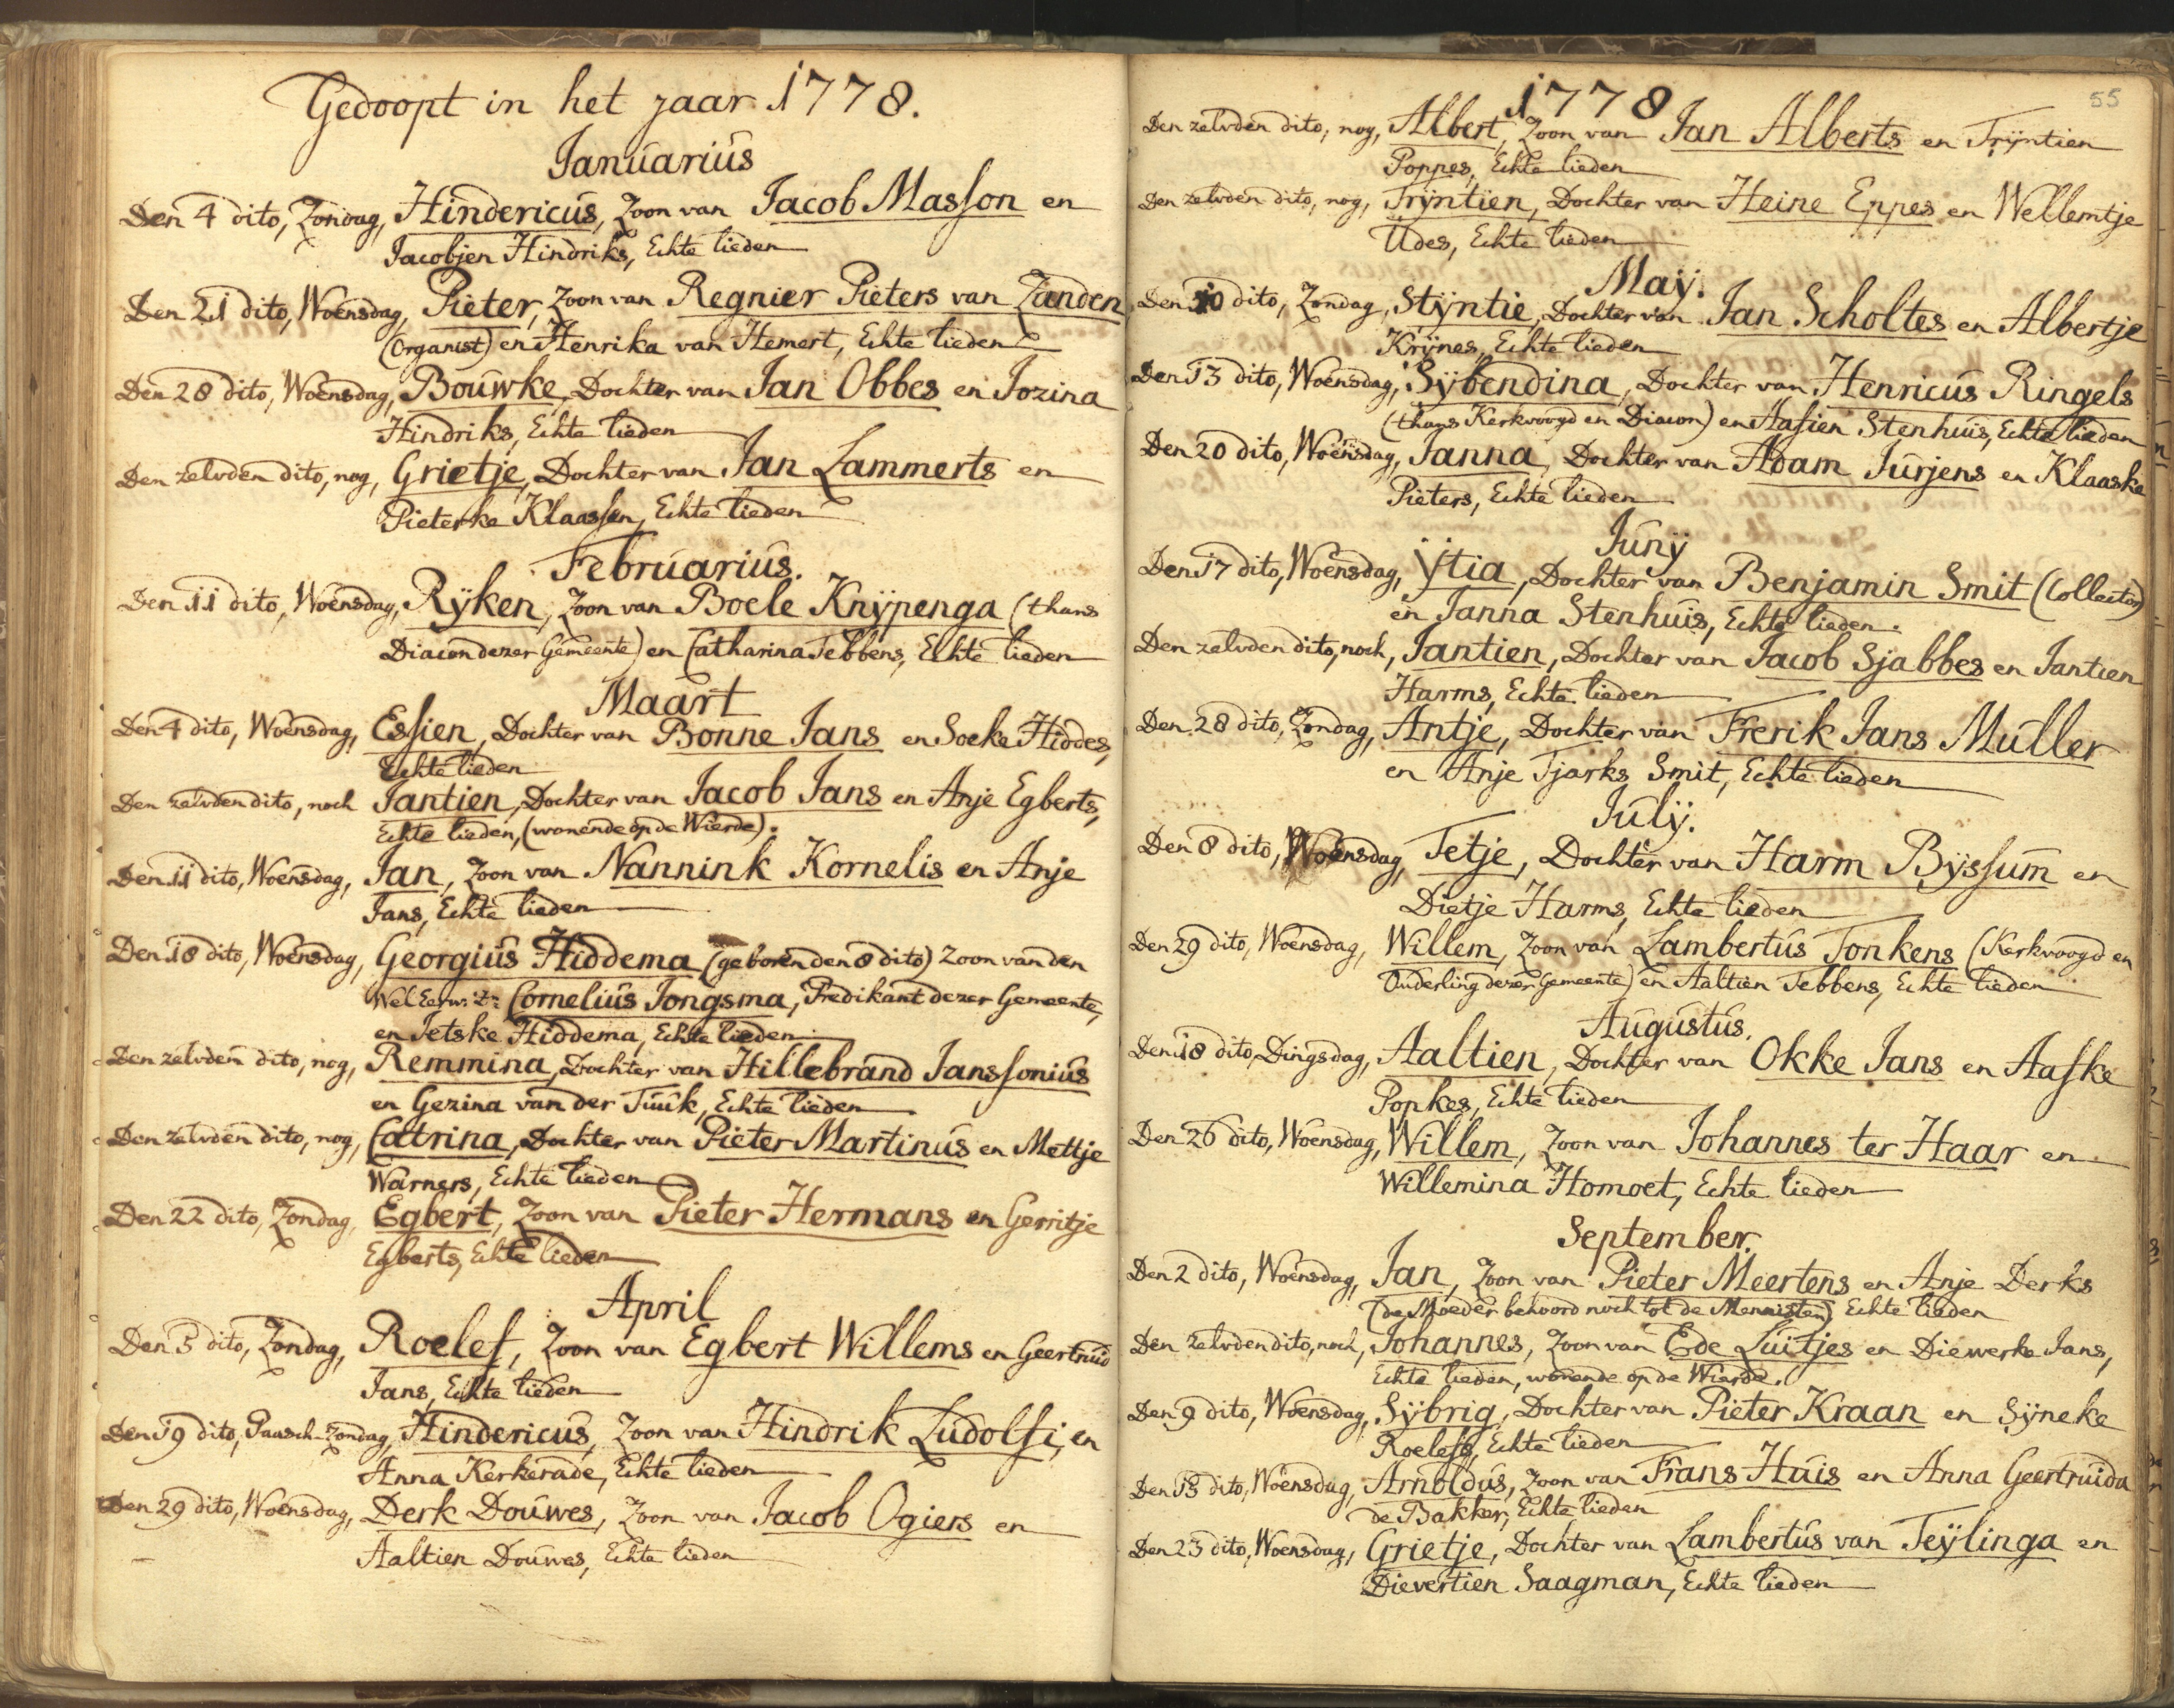 Gedoopt in het jaar 1778.
Januarius
Den 4 dito, Zondag, Hindericus, Zoon van Jacob Masson en
Jacobjen Hindriks, Echte lieden
Den 21 dito, Woensdag, Pieter, Zoon van Regnier Pieters van Zanden
(Organist) en Henrika van Hemert, Echte lieden
Den 28 dito, Woensdag, Bouwke, Dochter van Jan Obbes en Jozina
Hindriks, Echte lieden
Den zelvden dito, nog, Grietje, Dochter van Jan Lammerts en
Pieterke Klaassen, Echte lieden
Februarius.
Den 11 dito, Woensdag, Ryken, Zoon van Boele Knypenga (thans
Diacon dezer Gemeente) en Catharina Tebbens, Echte lieden
Maart
Den 4 dito, Woensdag, Essien, Dochter van Bonne Jans en Soeke Hiddes,
Echte lieden
Den zelvden dito, noch Jantien, Dochter van Jacob Jans en Anje Egberts,
Echte lieden, (wonende op de Wierde).
Den 11 dito, Woensdag, Jan, Zoon van Nannink Kornelis en Anje
Jans, Echte lieden
Den 18 dito, Woensdag, Georgius Hiddema (geboren den 8 dito) Zoon van den
Wel Eerw: Cornelius Jongsma, Predikant dezer Gemeente,
en Jetske Hiddema, Echte lieden
Den zelvden dito, nog, Remmina, Dochter van Hillebrand Janssonius
en Gezina van der Tuuk, Echte lieden
Den zelvden dito, nog, Catrina, Dochter van Pieter Martinus en Mettje
Warners, Echte lieden
Den 22 dito, Zondag, Egbert, Zoon van Pieter Hermans en Gerritje
Egberts, Echte lieden
April
Den 5 dito, Zondag, Roelef, Zoon van Egbert Willems en Geertruid
Jans, Echte lieden
Den 19 dito, Paasch-Zondag, Hindericus, Zoon van Hindrik Ludolfi, en
Anna Kerkerade, Echte lieden
Den 29 dito, Woensdag, Derk Douwes, Zoon van Jacob Ogiers en
Aaltien Douwes, Echte lieden
1778
55
Den zelvden dito, nog, Albert, Zoon van Jan Alberts en Tryntien
Poppes, Echte lieden
Den zelvden dito, nog, Tryntien, Dochter van Heine Eppes en Wellemtje
Udes, Echte lieden
May.
Den 10 dito, Zondag, Styntie, Dochter van Jan Scholtes en Albertje
Krynes, Echte lieden
Den 13 dito, Woensdag, Sybendina, Dochter van Henricus Ringels
(thans Kerkvoogd en Diacon) en Aafien Stenhuis, Echte lieden
Den 20 dito, Woensdag, Janna, Dochter van Adam Jurjens en Klaaske
Pieters, Echte lieden
Juny
Den 17 dito, Woensdag, Ytia, Dochter van Benjamin Smit (Collector)
en Janna Stenhuis, Echte lieden.
Den zelvden dito, noch, Jantien, Dochter van Jacob Sjabbes en Jantien
Harms, Echte lieden
Den 28 dito, Zondag, Antje, Dochter van Frerik Jans Muller
en Anje Tjarks Smit, Echte lieden
July.
Den 8 dito, Woensdag, Tetje, Dochter van Harm Byssum en
Dietje Harms, Echte lieden
Den 29 dito, Woensdag, Willem, Zoon van Lambertus Tonkens (Kerkvoogd en
Ouderling dezer Gemeente) en Aaltien Tebbens, Echte lieden
Augustus.
Den 18 dito, Dingsdag, Aaltien, Dochter van Okke Jans en Aafke
Popkes, Echte lieden
Den 26 dito, Woensdag, Willem, Zoon van Johannes ter Haar en
Willemina Homoet, Echte lieden
September.
Den 2 dito, Woensdag, Jan, Zoon van Pieter Meertens en Anje Derks
(de Moeder behoord noch tot de Mennisten) Echte lieden
Den zelvden dito, noch, Johannes, Zoon van Ede Luitjes en Diewerke Jans,
Echte lieden, wonende op de Wierde.
Den 9 dito, Woensdag, Sybrig, Dochter van Pieter Kraan en Syneke
Roelefs, Echte lieden
Den dito, Woensdag, Arnoldus, Zoon van Frans Huis en Anna Geertruida
de Bakker, Echte lieden
Den 23 dito, Woensdag, Grietje, Dochter van Lambertus van Teylinga en
Dievertien Saagman, Echte lieden